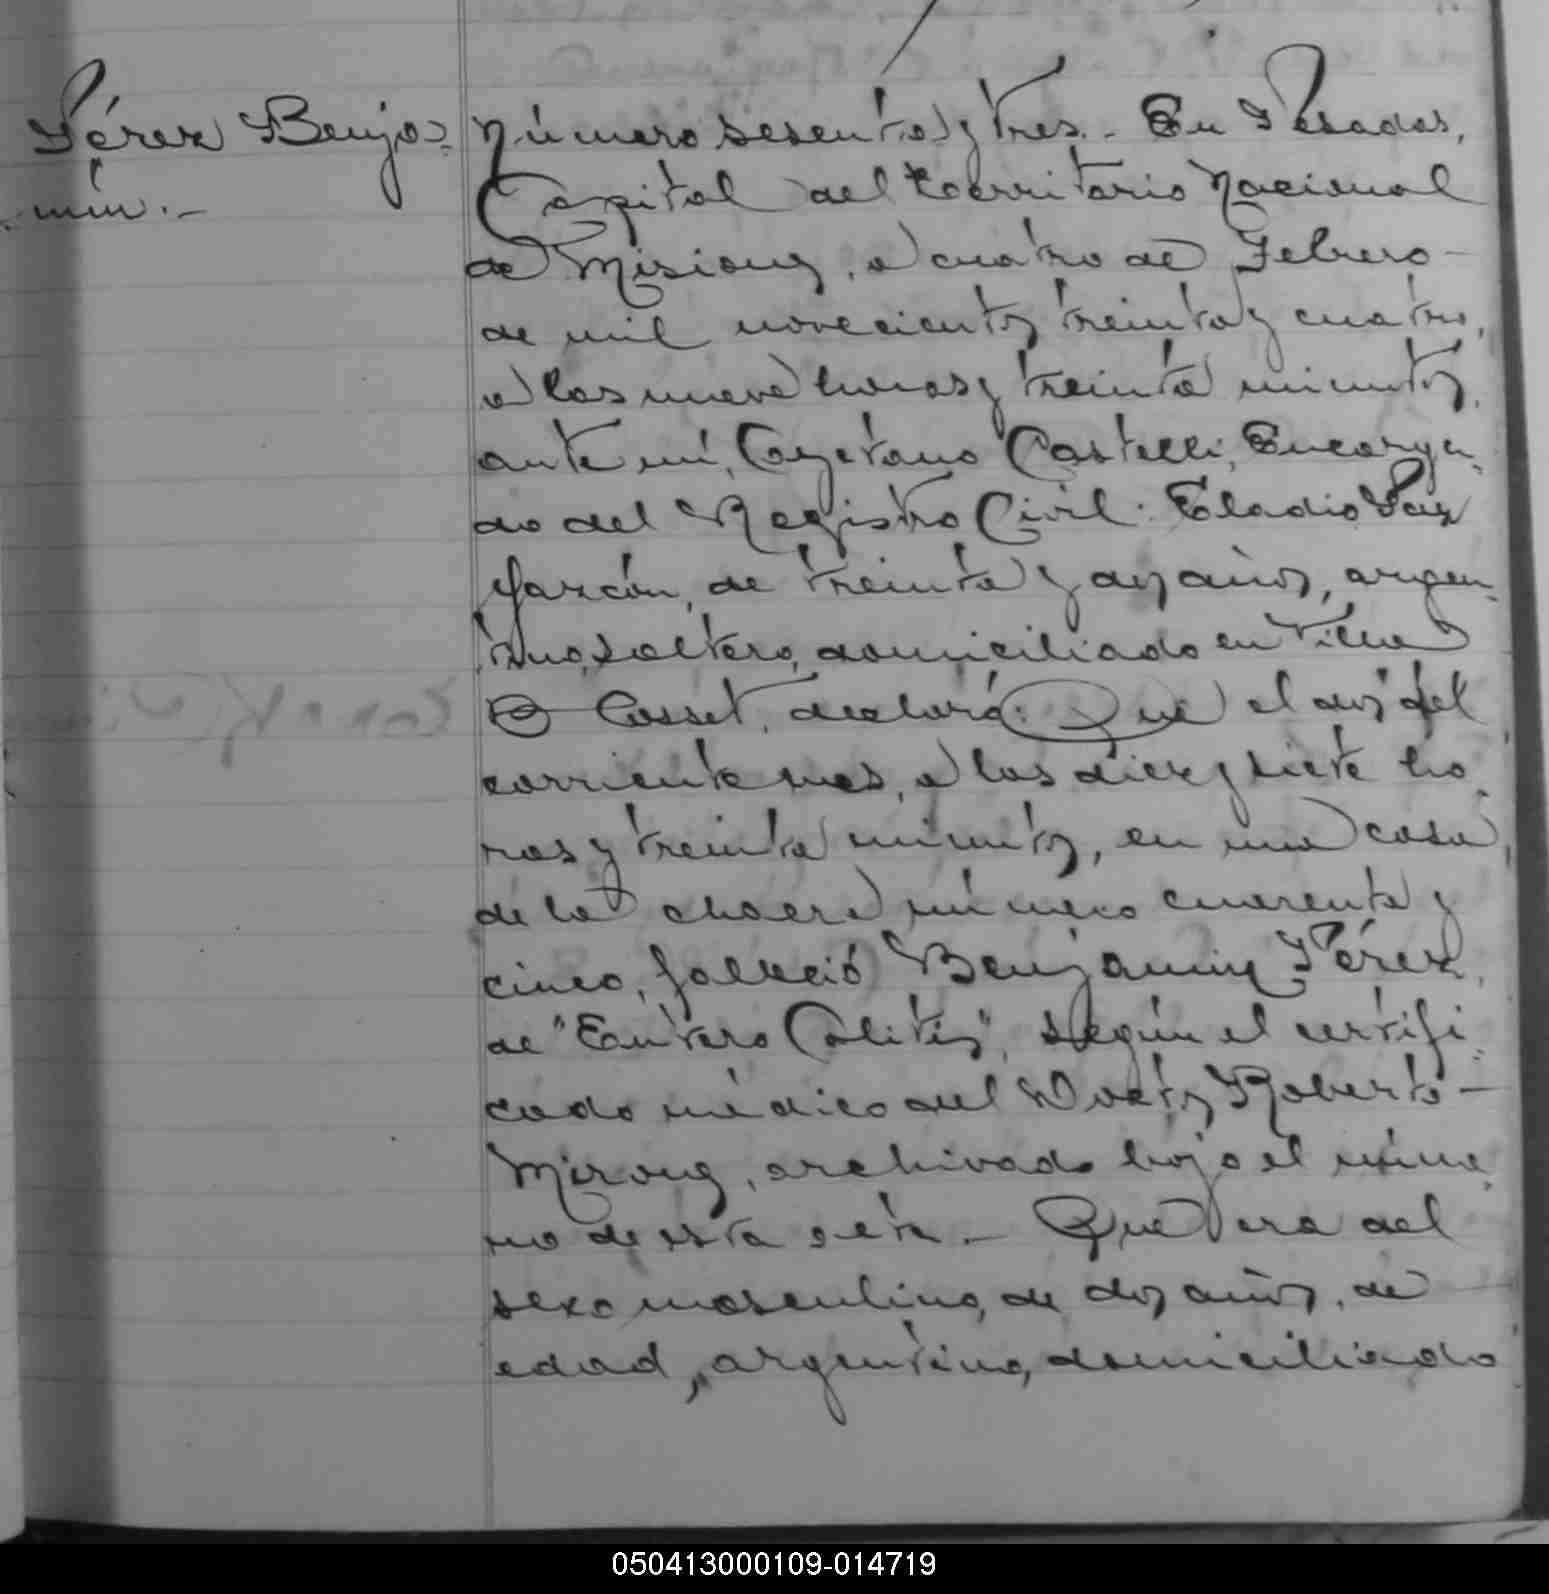 Pérez Benja-
mín.-
Número sesenta y tres.- En Posadas,
Capital del Territorio Nacional
de Misiones, a cuatro de Febrero-
de mil novecientos treinta y cuatro,
a las nueve horas y treinta minutos,
ante mí, Cayetano Castelli, Encarga-
do del Registro Civil: Eladio
Garzón, de treinta y dos años, argen-
tino, soltero, domiciliado en Villa
Cosset, declaró: Que el dos del
corriente mes, a las diez y siete ho-
ras y treinta minutos, en una casa,
de la chacra número cuarenta y
cinco, falleció Benjamin Pérez,
de "Entero Colitis", según el certifi-
cado médico del Doctor Roberto-
archivado bajo el núme-
ro de esta acta.- Que era del
sexo masculino, de dos años, de
edad, argentino, domiciliado
050413000109-014719